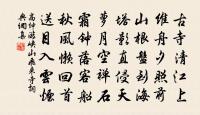 古寺清江上
維舟夕照前
山根盤到海
塔影直侵天
月空禪石
霜鐘落客船
秋風懶回首
送目入雲煙
高紳游峽山飛來寺詞
典網集